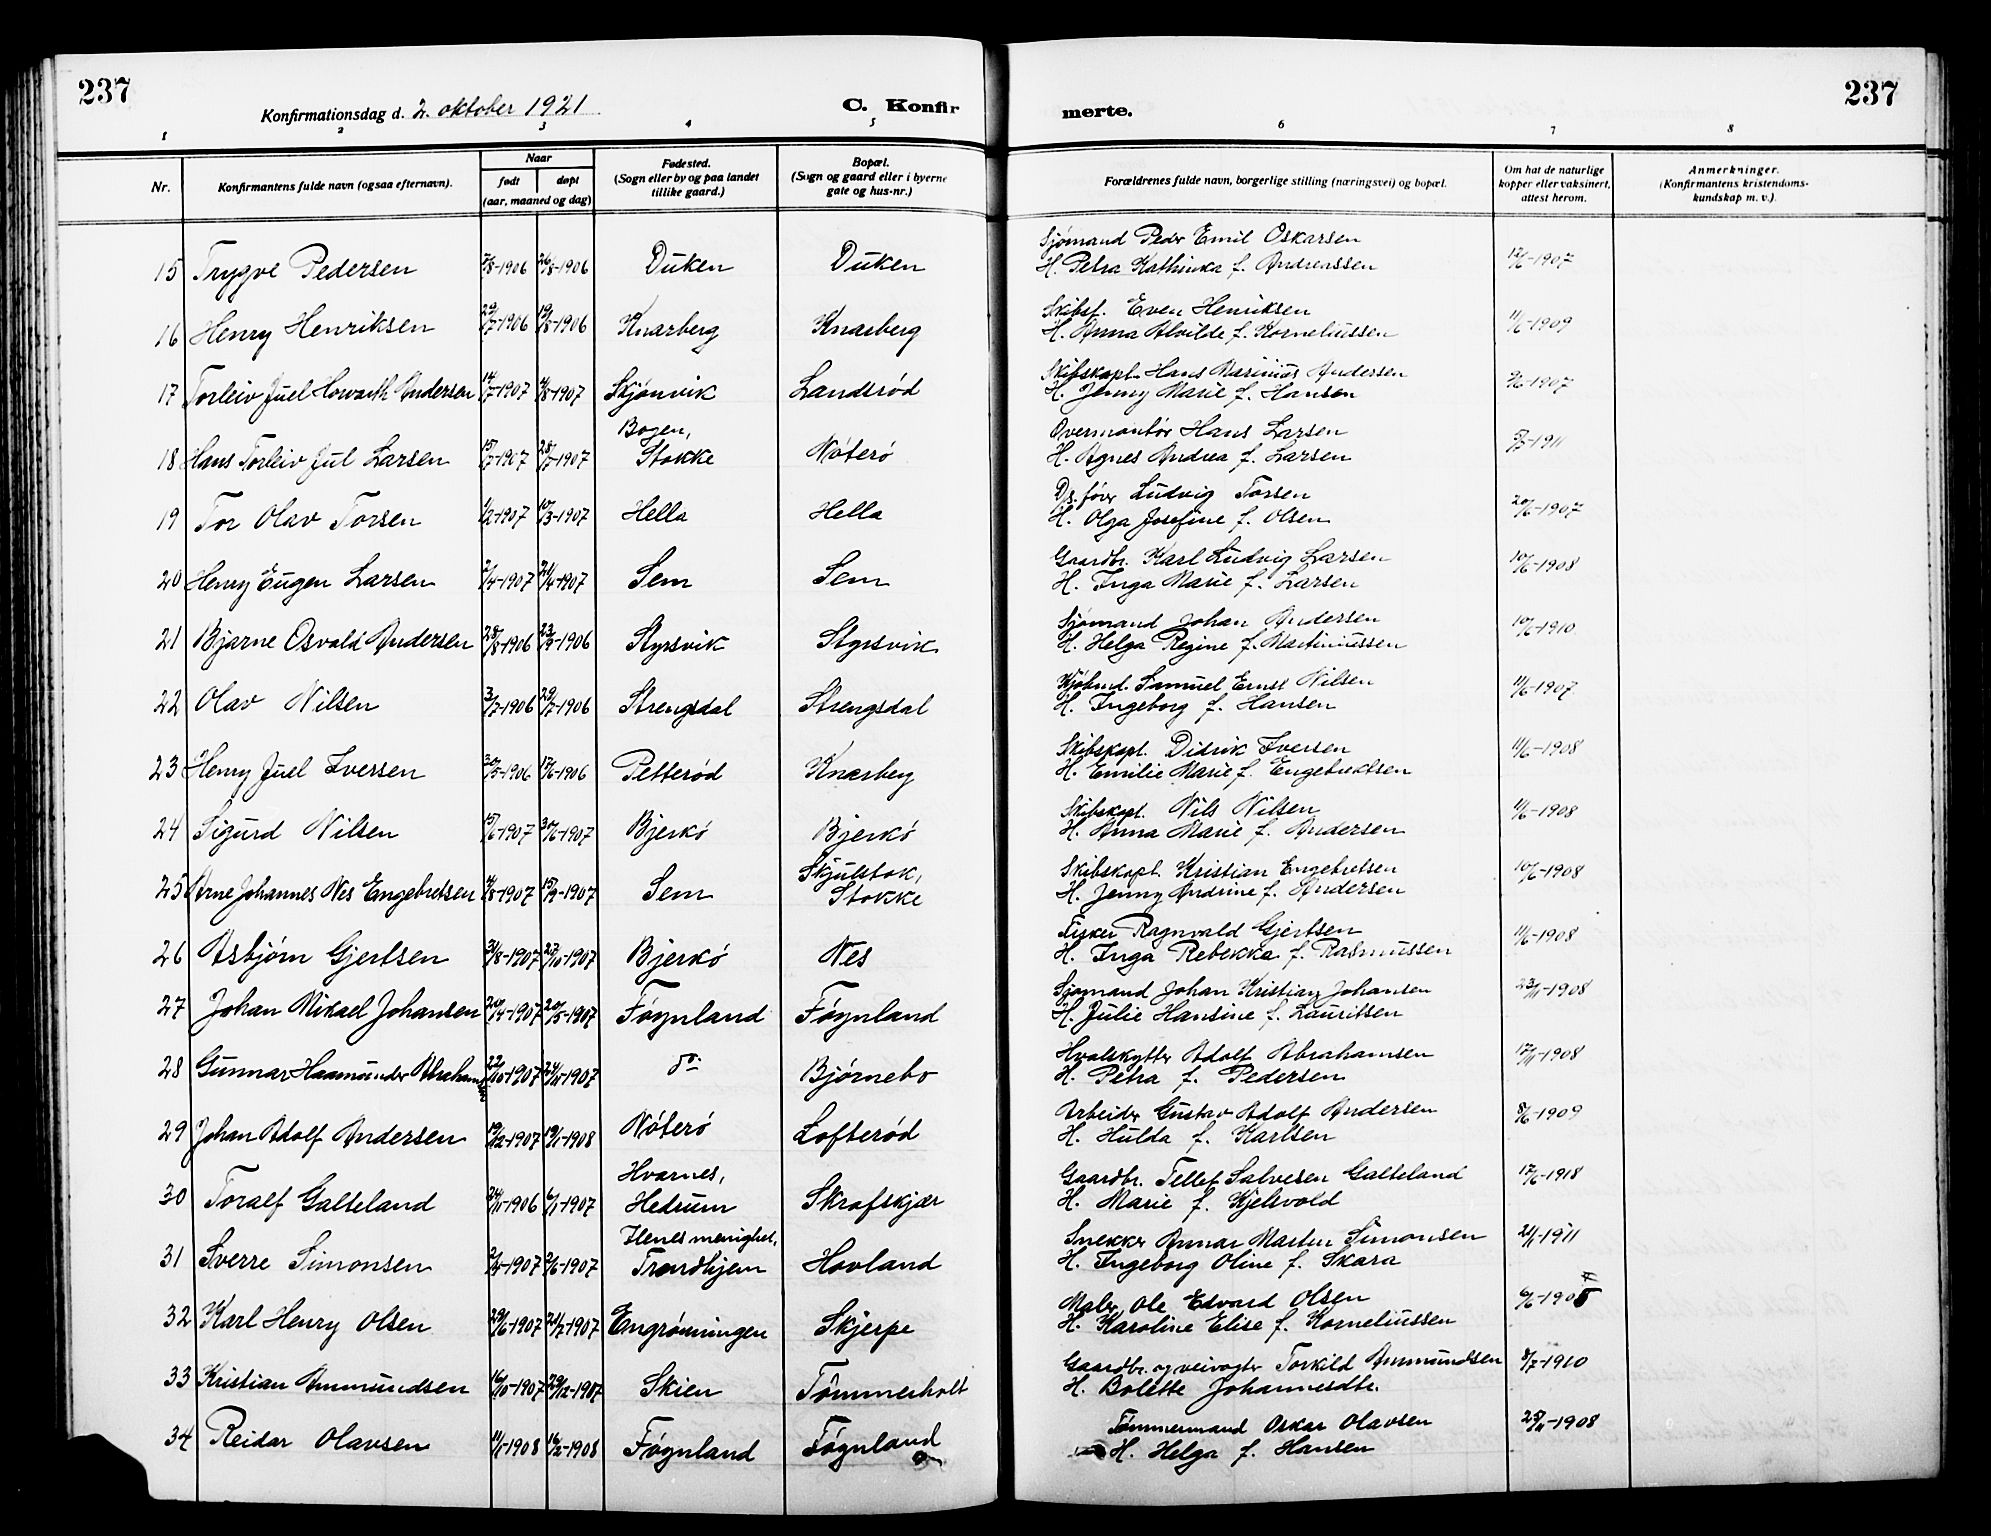 237
Konfirmationsdag d. 2. oktober 1921
C. Konfirmerte.
237
1 2 3 4 5 6 7 8
Nr.
Konfirmantens fulde navn (ogsaa efternavn).
Naar
født
døpt
(aar, maaned og dag)
Fødested.
(Sogn eller by og paa landet
tillike gaard.)
Bopæl.
(Sogn og gaard eller i byerne
gate og hus-nr.)
Forældrenes fulde navn, borgerlige stilling (næringsvei) og bopæl.
Om hat de naturlige
kopper eller vaksinert,
attest herom.
Anmerkninger.
(Konfirmantens kristendoms-
kundskap m. v.).
15 Trygve Pedersen 7/8-1906 26/8-1906 Duken Duken
Sjømand Peder Emil Oskarsen
H. Petra Kathinka f. Andreassen 12/6-1907
16 Henry Henriksen 29/7-1906 19/8-1906 Knarberg Knarberg
Skibsf. Even Henriksen
H. Anna Alvilde f. Korneliussen 11/6-1909
17 Torleiv Juel Howarth Andersen 14/7-1907 4/8-1907 Skjønvik Landsrød
Skibskapt. Hans Marinius Andersen
H. Jenny Marie f. Hansen -1907
18 Hans Torleiv Jul Larsen 15/7-1907 28/7-1907 Bogen, Stokke Nøterø
Overmontør Hans Larsen
H. Agnes Andrea f. Larsen 5/7-1911
19 Tor Olav Torsen 1/2-1907 10/3-1907 Hella Hella
Ds. fører Ludvig Torsen
H. Olga Josefine f. Olsen 20/6-1907
20 Henry Eugen Larsen 2/4-1907 21/4-1907 Sem Sem
Gaardbr. Karl Ludvig Larsen
H. Inga Marie f. Larsen 10/6-1908
21 Bjarne Osvald Andersen 28/8-1906 23/9-1906 Styrsvik Styrsvik
Sjømand Johan Andersen
H. Helga Regine f. Martiniussen 10/6-1910
22 Olav Nilsen 3/7-1906 29/7-1906 Strengsdal Strengsdal
Kjøbmd. Samuel Ernst Nilsen
H. Ingeborg f. Hansen 11/6-1907
23 Henry Juel Iversen 20/5-1906 17/6-1906 Petterød Knarberg
Skibskapt. Didrik Iversen
H. Emilie Marie f. Engebrektsen 11/6-1908
24 Sigurd Nilsen 15/6-1907 30/6-1907 Bjerkø Bjerkø
Skibskapt. Nils Nilsen
H. Anna Marie f. Andersen 11/6-1908
25 Arne Johannes Nes Engebretsen 4/8-1907 15/9-1907 Sem Skjulstok, Stokke
Skibskapt. Kristian Engebretsen
H. Jenny Andrine f. Andersen 10/6-1908
26 Asbjørn Gjertsen 31/8-1907 27/10-1907 Bjerkø Nes
Fisker Ragnvald Gjertsen
H. Inga Rebekka f. Rasmussen 11/6-1908
27 Johan Mikael Johansen 20/4-1907 20/5-1907 Føynland Føynland
Sjømand Johan Kristian Johansen
H. Julie Hansine f. Lauritsen 23/11-1908
28 Gunnar Haamunder Abrahamsen 22/10-1907 24/11-1907 do. Bjørnebo
Hvalskytter Adolf Abrahamsen
H. Petra f. Pedersen 17/11-1908
29 Johan Adolf Andersen 19/12-1907 19/1-1908 Nøterø Lofterød
Arbeider Gustav Adolf Andersen
H. Hulda f. Karlsen 8/6-1909
30 Toralf Galteland 24/11-1906 6/1-1907 Hvarnes, Hedrum Skrafskjær
Gaardbr. Tellef Salvesen Galteland
H. Marie f. Kjelsvold 17/6-1918
31 Sverre Simonsen 2/4-1907 2/6-1907 Ilenes menighet, Trondhjem Hovland
Snekker Annar Martin Simonsen
H. Ingeborg Oline f. Skara -1911
32 Karl Henry Olsen 29/6-1907 21/7-1907 Engrønningen Skjerpe
Maler Ole Edvard Olsen
H. Karoline Elise f. Korneliussen
33 Kristian Ammundsen 16/10-1907 29/12-1907 Skien Tømmerholt
Gaardbr. og veivogter Torkild Ammundsen
H. Bolette Johannesdtr. 8/7-1910
34 Reidar Olavsen 11/1-1908 16/2-1908 Føynland Føynland
Tømmermand Oskar Olavsen
H. Helga f. Hansen 25/11-1908